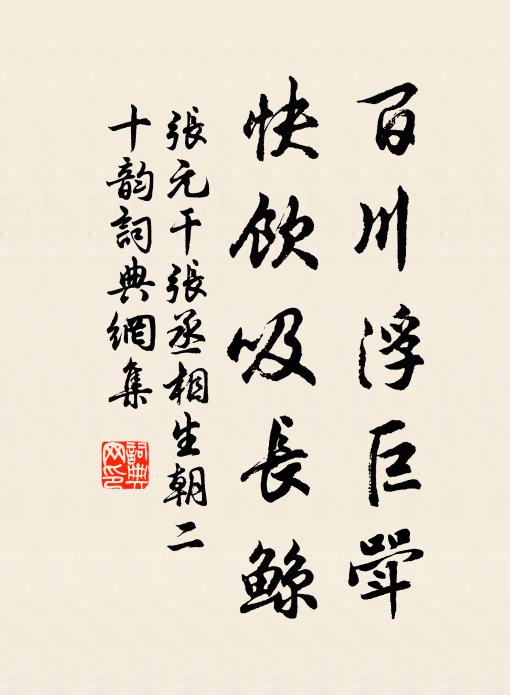 百川浮巨斝
快飲吸長鯨
張元干張丞相生朝二
十韵詞典網集
詞典
网印